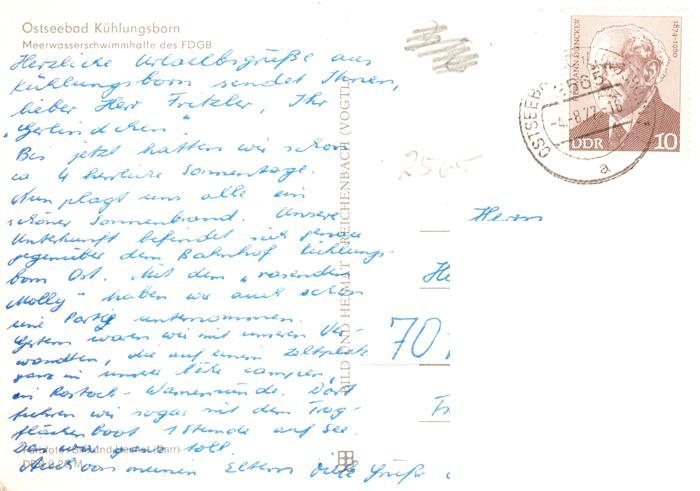 Ostseebad Kühlungsborn
Meerwasserschwimmhalle des FDGB
Herzliche Urlaubsgrüße aus
Kühlungsborn sendet Ihnen,
lieber Herr Fritzler, Ihr
"Gerlindchen".
Bis jetzt hatten wir schon
ca 4 herrliche Sonnentage.
Nun plagt uns alle ein
schöner Sonnenbrand. Unsere
Unterkunft befindet sich genau
gegenüber dem Bahnhof Kühlungs-
born Ost. Mit dem "rasenden
Molly" haben wir auch schon
eine Partie unternommen.
Gestern waren wir mit unseren Ver-
wandten, die auf einem Zeltplatz
ganz in unserer Nähe campen,
in Rostock-Warnemünde. Dort
fuhren wir sogar mit dem Trag-
flächenboot 1 Stunde auf See.
Das war toll
Auch von meinen Eltern viele Grüße
BILD UND HEIMAT REICHENBACH (VOGTL
2565
Herrn
He
70
Fr
HERMANN DUNCKER
1874-1960
DDR 10
OSTSEEBAD
-4.-8.77-16
a